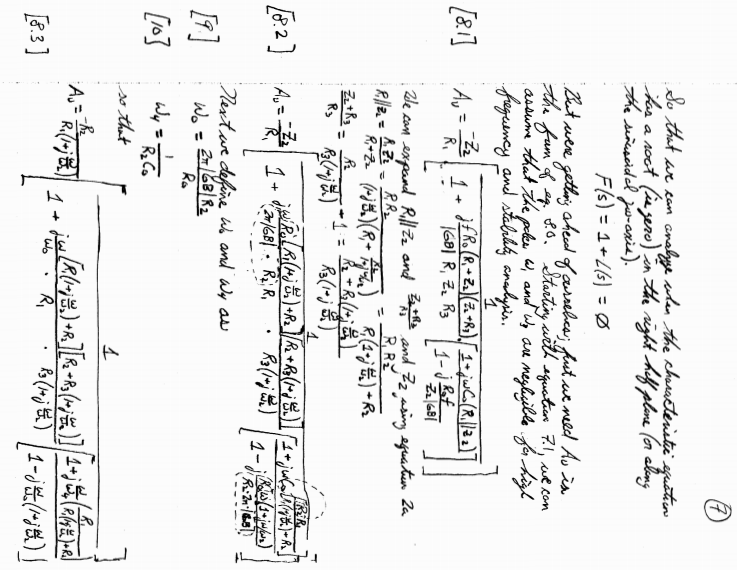 (7)
So that we can analyze when the characteristic equation
has a root (ie zero) in the right half plane (or along
the sinusoidal jω-axis).
F(s) = 1 + L(s) = Ø
But we're getting ahead of ourselves; first we need Av in
the form of eq 8.0. Starting with equation 7.1, we can
assume that the poles ω, and ω3 are negligible for high
frequency and stability analysis.
[8.1] Av = -Z2/R1 [ 1 / ( 1 + jfR0(R1+Z2)(Z2+R3) / |GB| R1 Z2 R3 [ 1+jωC0(R1||Z2) / 1 - j R0f / Z2|GB| ] ) ]
We can expand R1||Z2 and (Z2+R3)/R3 and Z2 using equation 2a
R1||Z2 = R1Z2 / (R1+Z2) = R1R2 / (1+jω/ω2)(R1 + R2/(1+jω/ω2)) = R1R2 / (R1(1+jω/ω2)+R2)
(Z2+R3)/R3 = R2 / R3(1+jω/ω2) + 1 = (R2+R3(1+jω/ω2)) / R3(1+jω/ω2)
[8.2] Av = -Z2/R1 [ 1 / ( 1 + jωR0[R1(1+jω/ω2)+R2][R2+R3(1+jω/ω2)] / (2π|GB| · R2R1 · R3(1+jω/ω2))
Next we define ω0 and ω4 as
[9] ω0 = 2π|GB|R2 / R0
[10] ω4 = 1 / R2C0
so that
[8.3] Av = -R2 / R1(1+jω/ω2) [ 1 / ( 1 + jω/ω0 [R1(1+jω/ω2)+R2] / R1 · [R2+R3(1+jω/ω2)] / R3(1+jω/ω2) [ 1+jω/ω4 (R1 / (R1(1+jω/ω2)+R2)) / 1 - jω/ω0(1+jω/ω2) ] ) ]